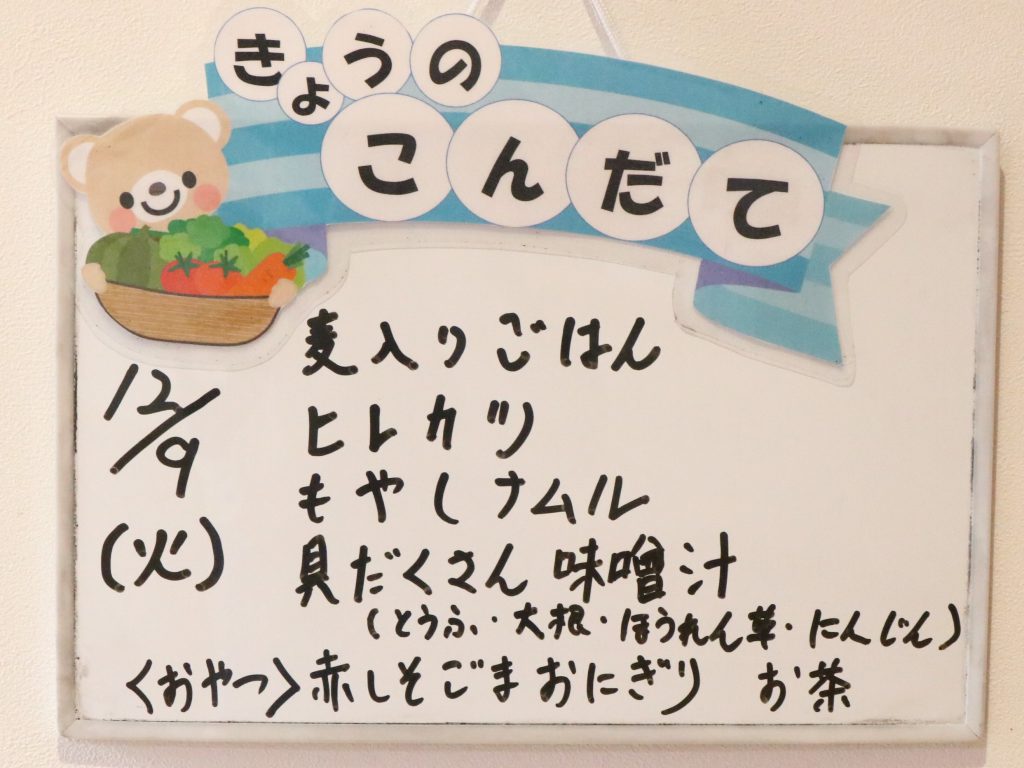 きょうの
こんだて
12/9
(火)
麦入りごはん
ヒレカツ
もやしナムル
具だくさん味噌汁
(とうふ・大根・ほうれん草・にんじん)
〈おやつ〉赤しそごまおにぎり お茶